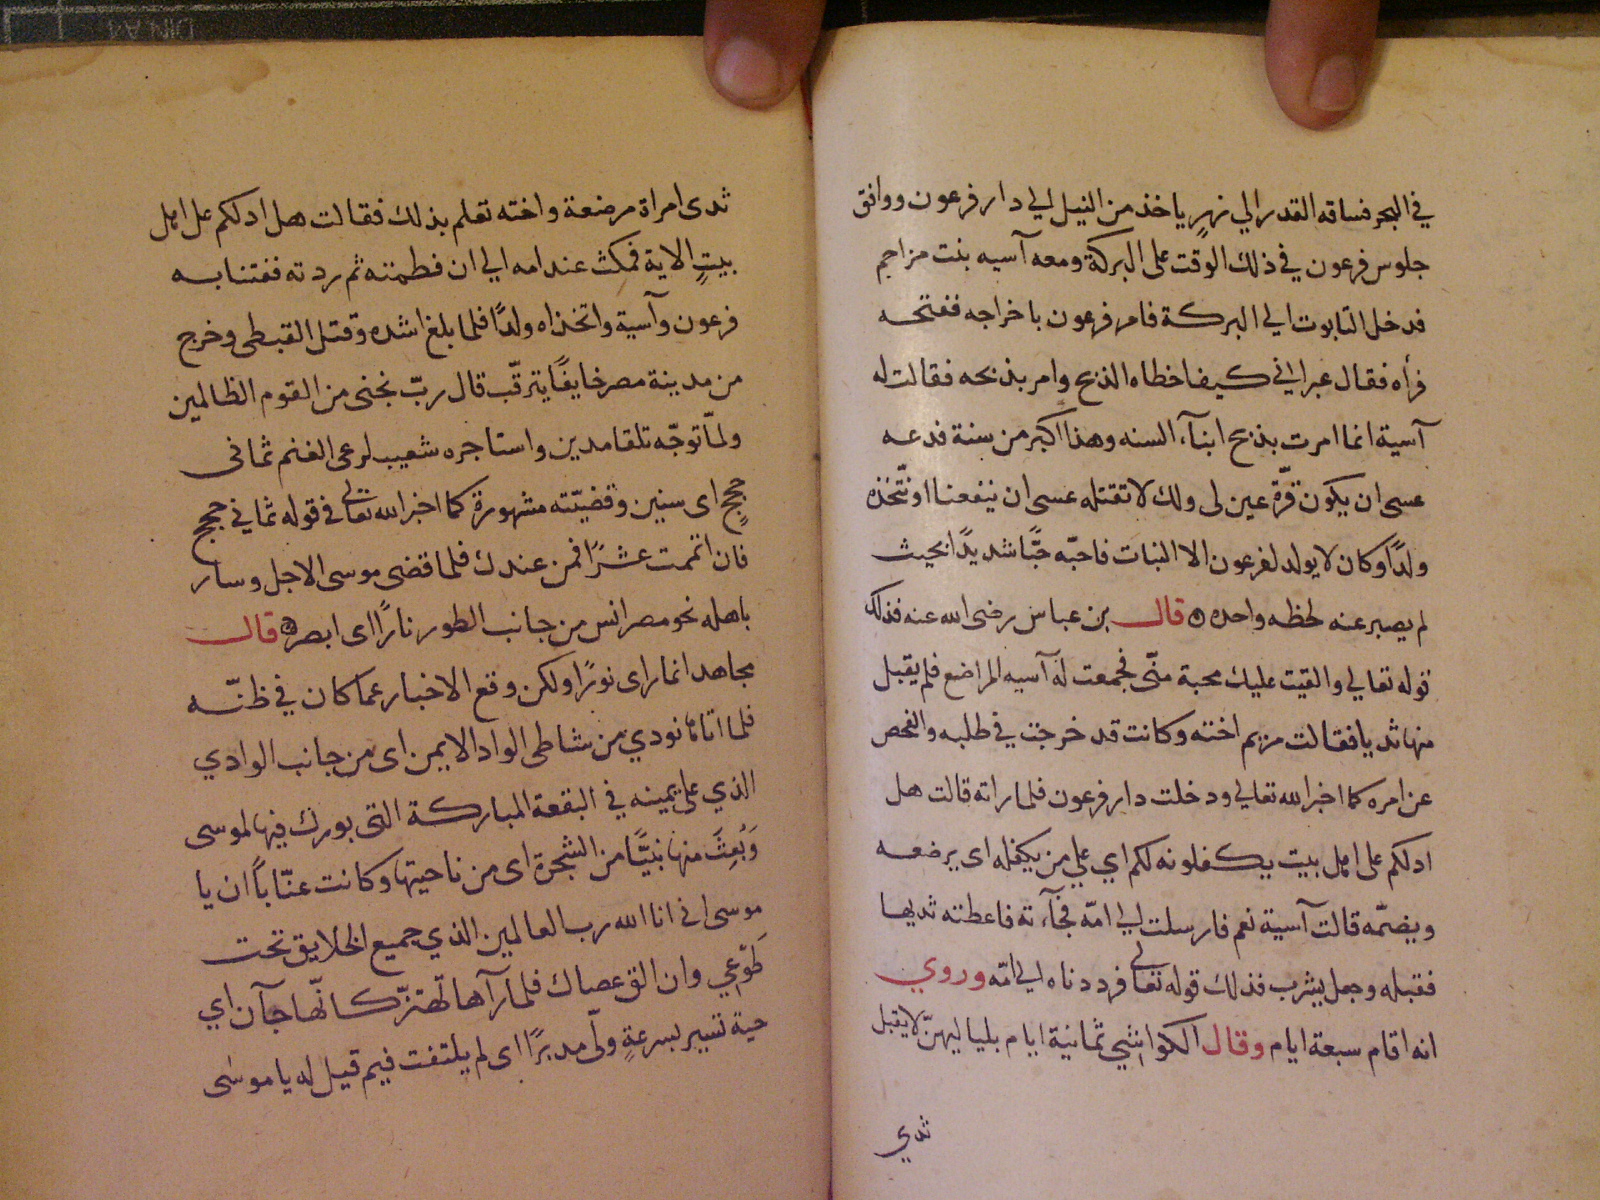 في البحر فساقه القدر الي نهرٍ ياخذ من النيل الي دار فرعون ووافق
جلوس فرعون في ذلك الوقت على البركة ومعه آسيه بنت مزاحم
فدخل التابوت الي البركة فامر فرعون باخراجه ففتحه
فرأه فقال عبراني كيف اخطاه الذبح وامر بذبحه فقالت له
آسية انما امرت بذبح ابنآء السنه وهذا اكبر من سنة فدعه
عسى ان يكون قرّة عين لى ولك لا تقتله عسى ان ينفعنا او نتّخذه
ولدًا وكان لا يولد لفرعون الا البنات فاحبّه حبًّا شديدًا بحيث
لم يصبر عنه لحظه واحده قال بن عباس رضى الله عنه فذلك
قوله تعالي والقيت عليك محبة منّى فجمعت له آسيه المراضع فلم يقبل
منها ثديا فقالت مريم اخته وكانت قد خرجت في طلبه والفحص
عن امره كما اخبر الله تعالي ودخلت دار فرعون فلما راته قالت هل
ادلكم على اهل بيت يكفلونه لكم اي علي من يكفله اى يرضعه
ويضمّه قالت آسية نعم فارسلت الي امّه فجآءته فاعطته ثديها
فقبله وجعل يشرب فذلك قوله تعالى فرددناه الي امّه وروي
انه اقام سبعة ايام وقال الكواشي ثمانية ايام بلياليهنّ لا يقبل
ثدي
ثدى امراة مرضعة واخته تعلم بذلك فقالت هل ادلكم على اهل
بيتٍ الاية فمكث عند امه الي ان فطمته ثم ردته ففتنا به
فرعون وآسية واتخذاه ولدًا فلما بلغ اشده وقتل القبطى وخرج
من مدينة مصر خايفًا يترقّب قال ربّ نجنى من القوم الظالمين
ولمّا توجّه تلقا مدين واستاجره شعيب لرعى الغنم ثمانى
حججٍ اى سنين وقضيّته مشهورة كما اخبر الله تعالى في قوله ثماني حجج
فان اتممت عشرًا فمن عندك فلما قضى موسى الاجل وسار
باهله نحو مصر انس من جانب الطور نارًا اى ابصر قال
مجاهد انما راى نورًا ولكن وقع الاخبار عما كان في ظنّه
فلما اتاها نودي من شاطى الواد الايمن اى من جانب الوادي
الذي على يمينه في البقعة المباركة التى بورك فيها لموسى
وَبُعِثَ منها نبيًّا من الشجرة اى من ناحيتها وكانت عنّابًا ان يا
موسى انى انا الله رب العالمين الذي جميع الخلايق تحت
طَوْعِي وان الق عصاك فلما رآها تهتزّ كانّها جآن اي
حية تسير بسرعةٍ ولّى مدبرًا اى لم يلتفت فيم قيل له يا موسى